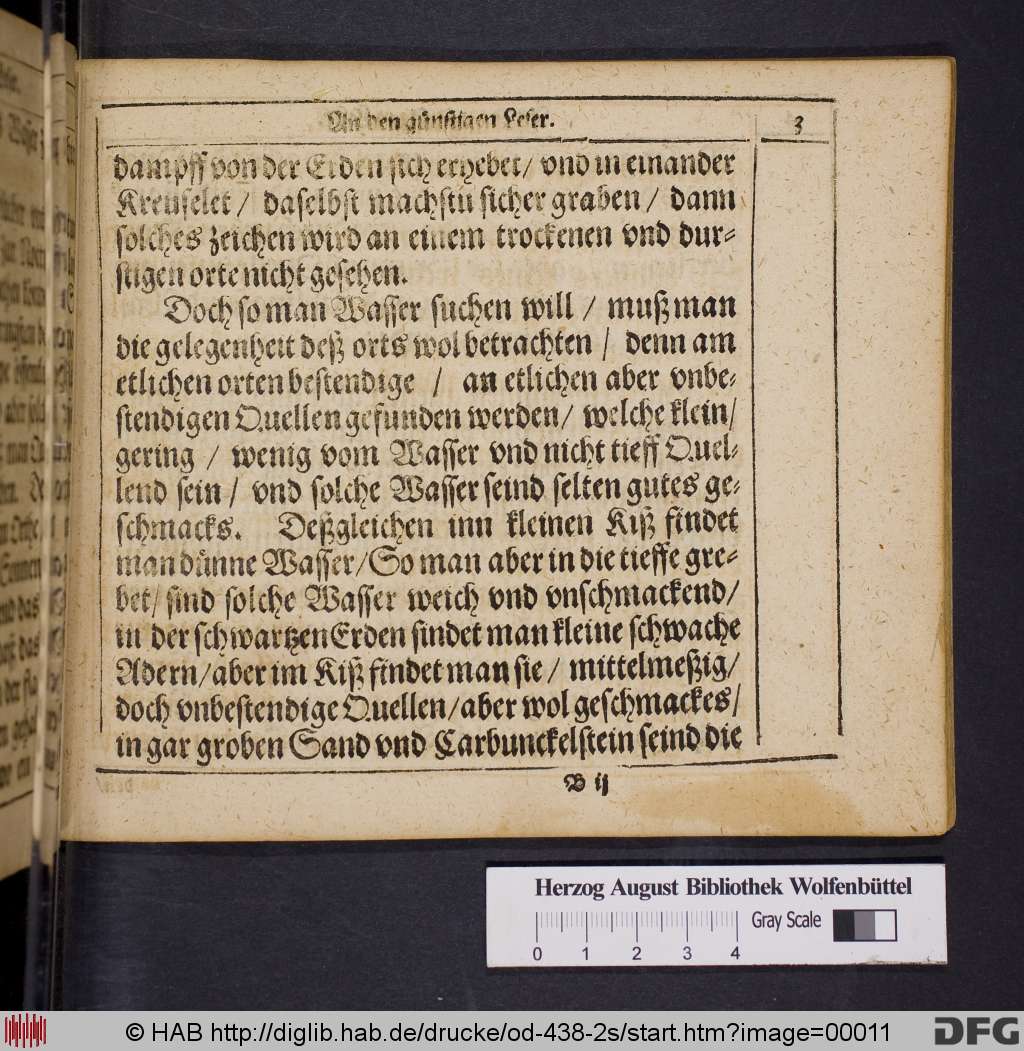 An den günstigen Leser.
3
dampff von der Erden sich erhebet/ vnd in einander
Kreuselet / daselbst machstu sicher graben / dann
solches zeichen wird an einem trockenen vnd dur-
stigen orte nicht gesehen.
Doch so man Wasser suchen will / muß man
die gelegenheit deß orts wol betrachten / denn am
etlichen orten bestendige / an etlichen aber vnbe-
stendigen Quellen gefunden werden / welche klein/
gering / wenig vom Wasser vnd nicht tieff Quel-
lend sein / vnd solche Wasser seind selten gutes ge-
schmacks. Deßgleichen inn kleinen Kiß findet
man dünne Wasser/ So man aber in die tieffe gre-
bet/ sind solche Wasser weich vnd vnschmackend/
in der schwartzen Erden findet man kleine schwache
Adern/ aber im Kiß findet man sie / mittelmeßig/
doch vnbestendige Quellen/ aber wol geschmackes/
in gar groben Sand vnd Carbunckelstein seind die
B ij
Herzog August Bibliothek Wolfenbüttel
Gray Scale
0 1 2 3 4
© HAB http://diglib.hab.de/drucke/od-438-2s/start.htm?image=00011
DFG